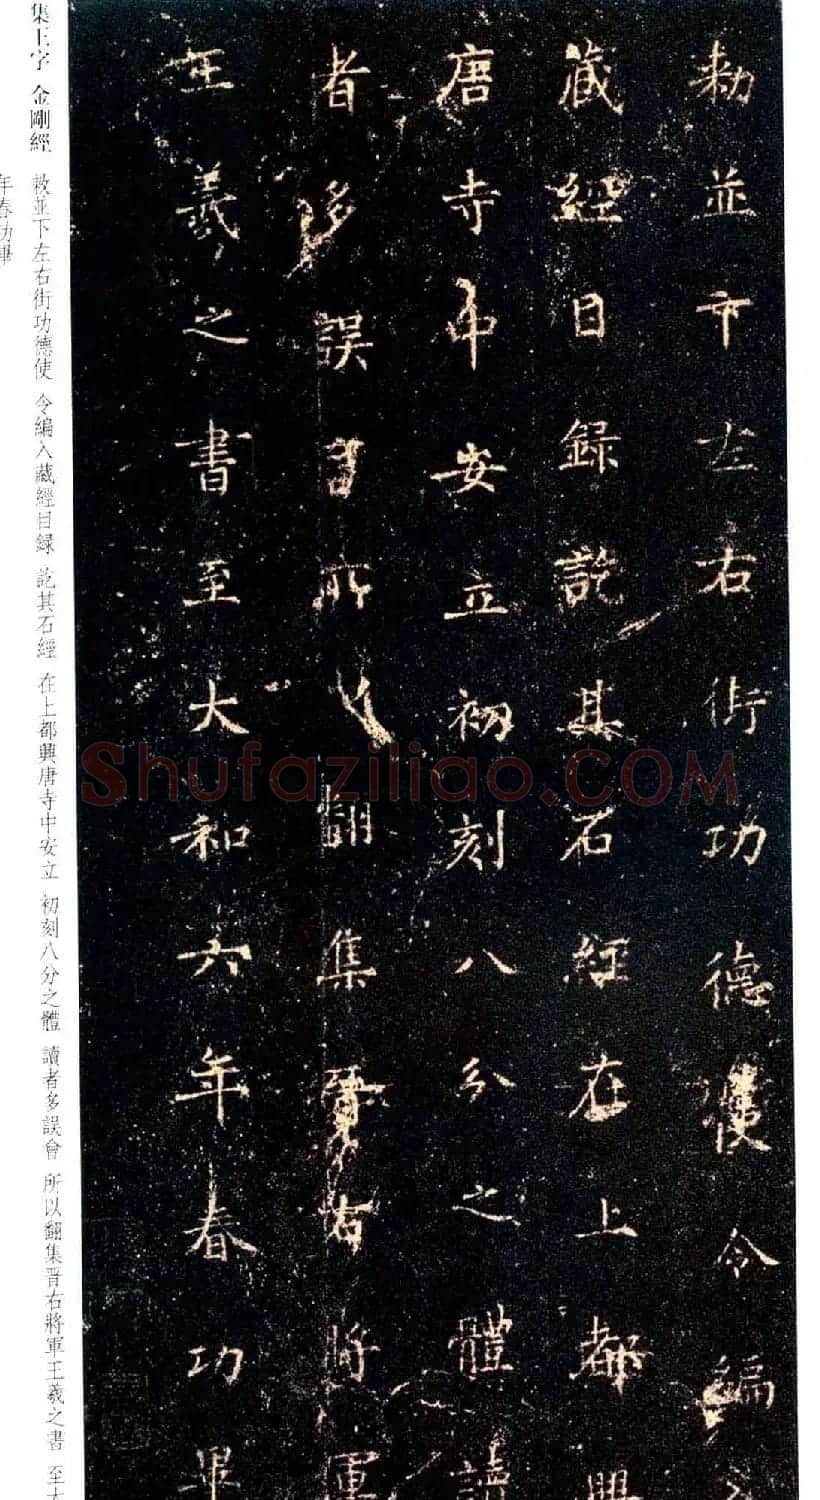 勅並下左右街功德使令編入
藏經目錄訖其石經在上都興
唐寺中安立初刻八分之體讀
者多誤會所以翻集晉右將軍
王羲之書至大和六年春功畢
集王字 金剛經
敕並下左右街功德使 令編入藏經目録 訖其石經 在上都興唐寺中安立 初刻八分之體 讀者多誤會 所以翻集晋右將軍王羲之書 至大
年春功畢
Shufaziliao.COM